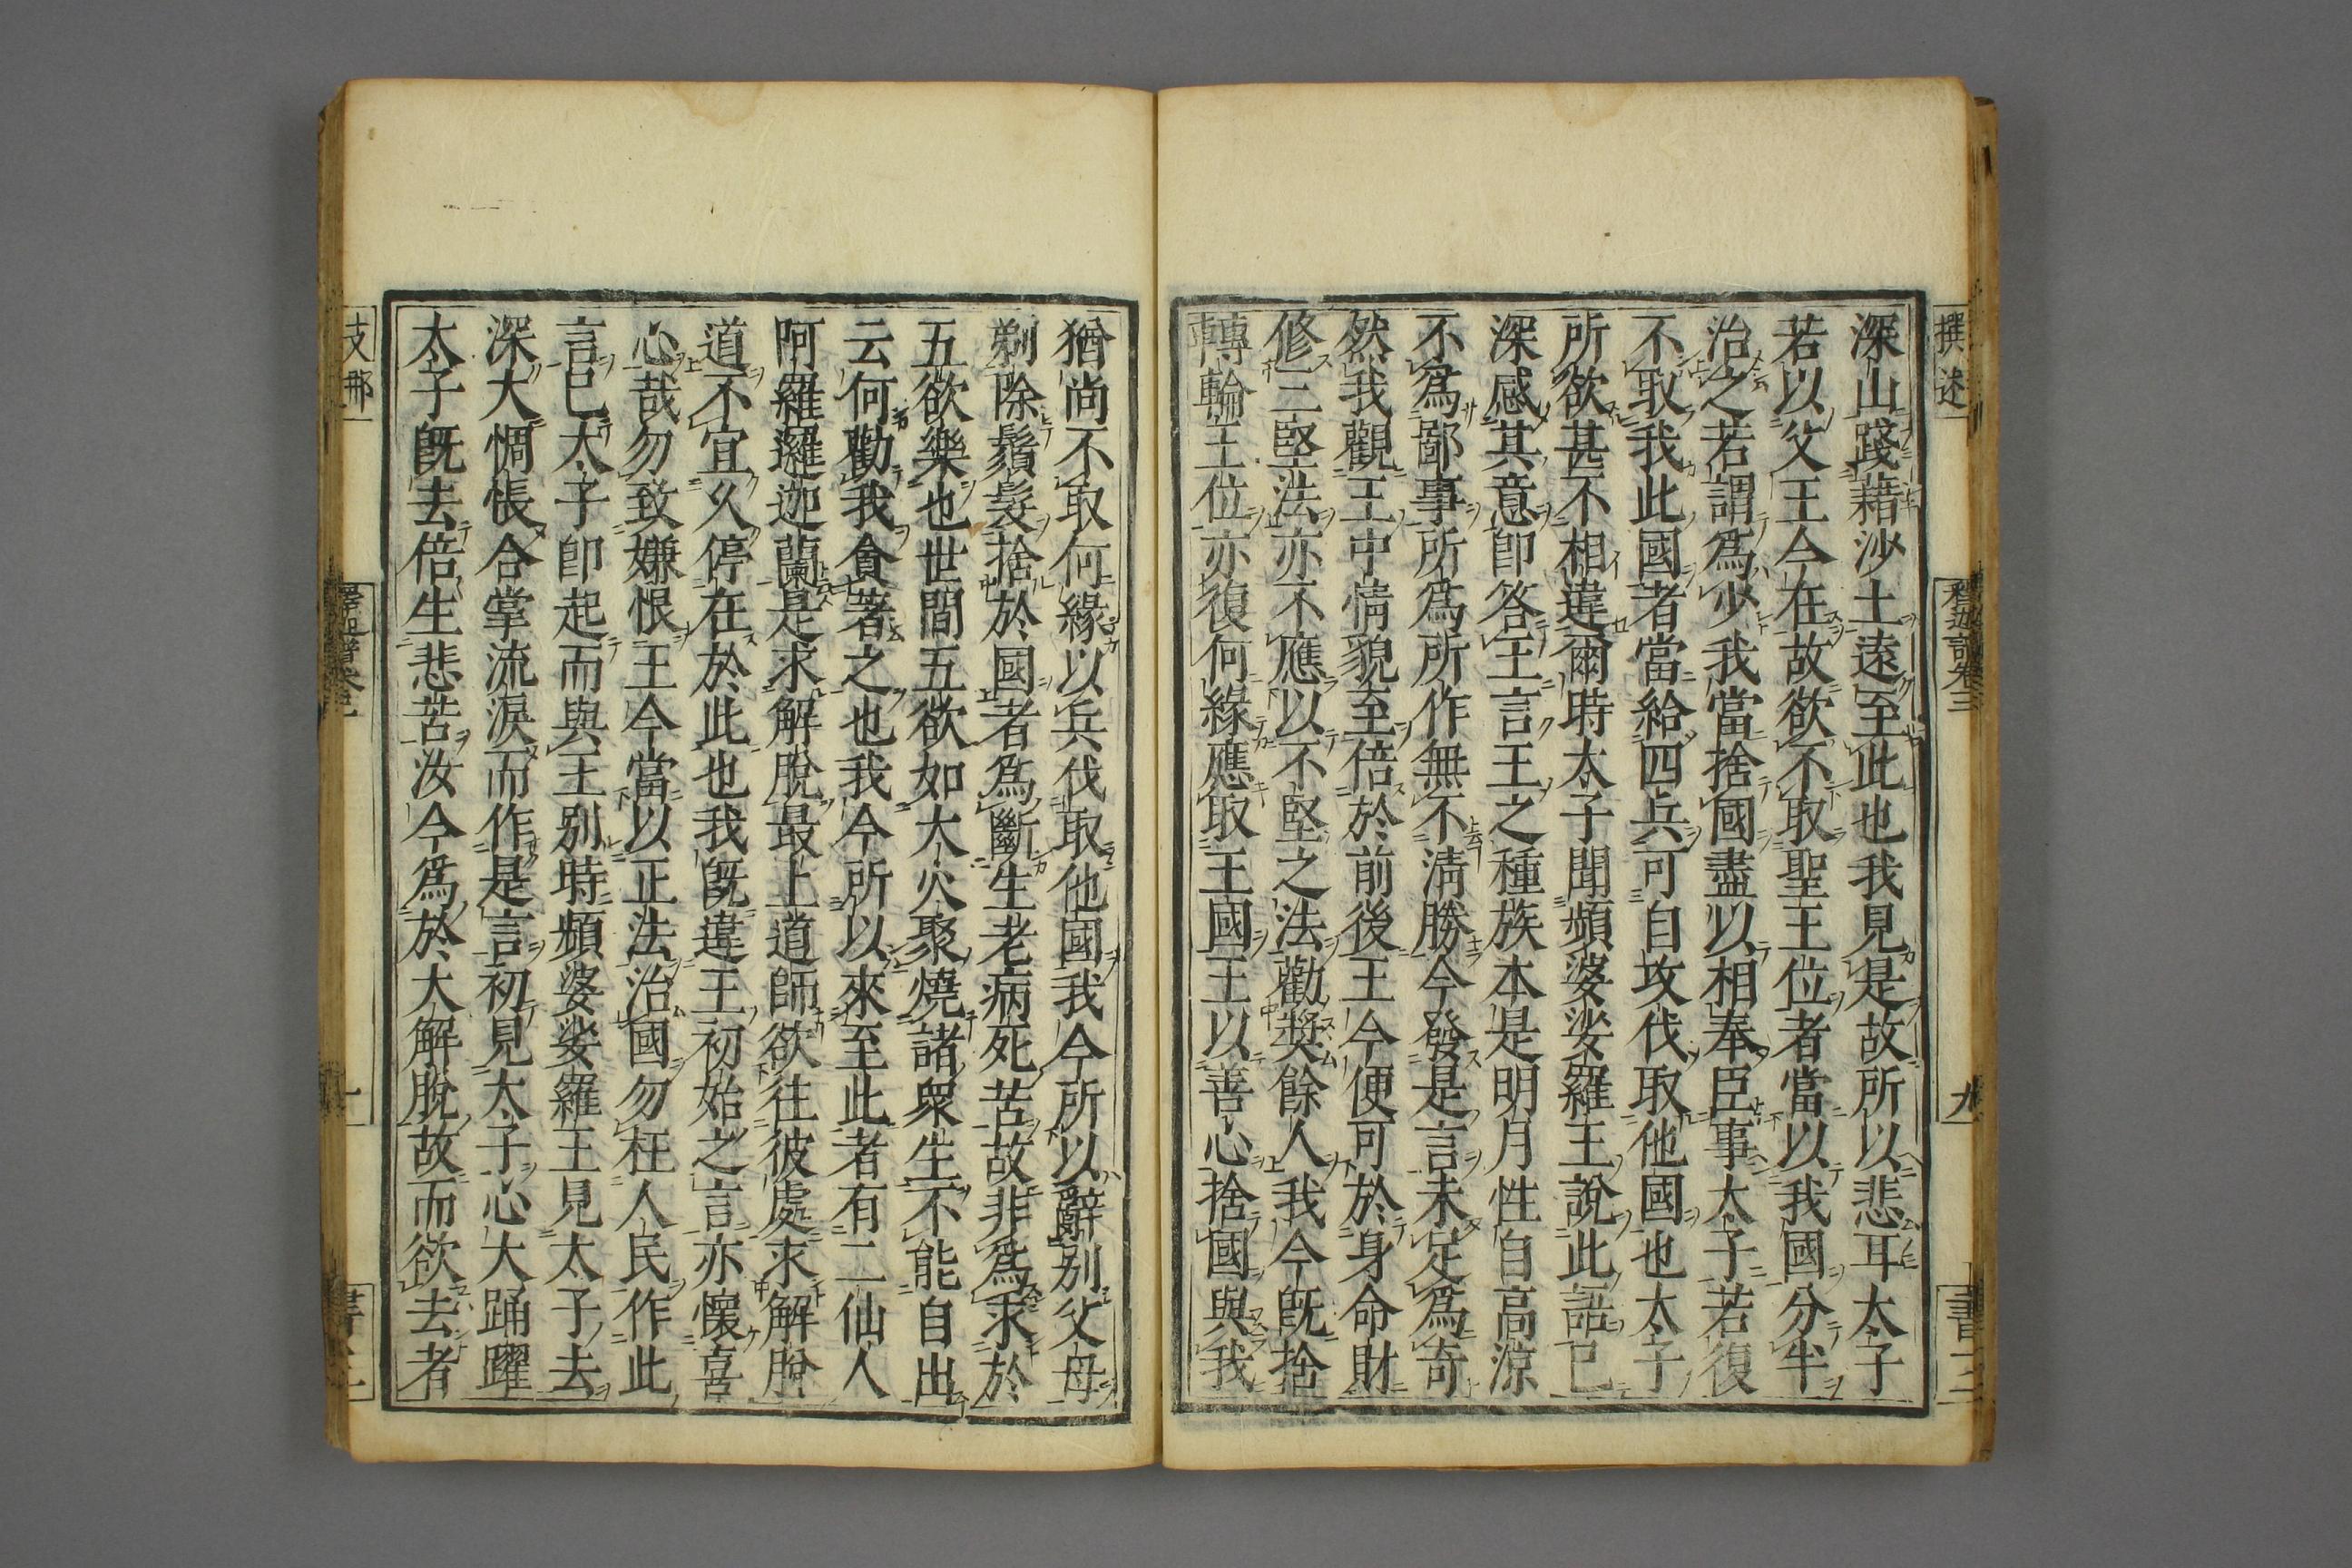 撰述
釋迦譜卷三
九
書二
深山踐藉沙土遠至此也我見是故所以悲耳太子
若以父王今在故欲不取聖王位者當以我國分半
治之若謂爲少我當捨國盡以相奉臣事太子若復
不取我此國者當給四兵可自攻伐取他國也太子
所欲甚不相違爾時太子聞頻婆娑羅王說此語已
深感其意即答王言王之種族本是明月性自高涼
不爲鄙事所爲所作無不清勝今發是言未足爲奇
然我觀王中情貌至倍於前後王今便可於身命財
修三堅法亦不應以不堅之法勸獎餘人我今既捨
轉輪王位亦復何緣應取王國王以善心捨國與我
猶尚不取何緣以兵伐取他國我今所以辭別父母
剃除鬚髮捨於國者爲斷生老病死苦故非爲求於
五欲樂也世間五欲如大火聚燒諸衆生不能自出
云何勸我貪著之也我今所以來至此者有二仙人
阿羅邏迦蘭是求解脫最上道師欲往彼處求解脫
道不宜久停在於此也我既違王初始之言亦懷喜
心哉勿致嫌恨王今當以正法治國勿枉人民作此
言已太子即起而與王別時頻婆娑羅王見太子去
深大惆悵合掌流淚而作是言初見太子心大踊躍
太子既去倍生悲苦汝今爲於大解脫故而欲去者
支那